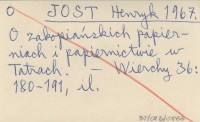 O JOST Henryk 1967.
O zakopiańskich papier-
niach i papiernictwie w
Tatrach. — Wierchy 36:
180-191, il.